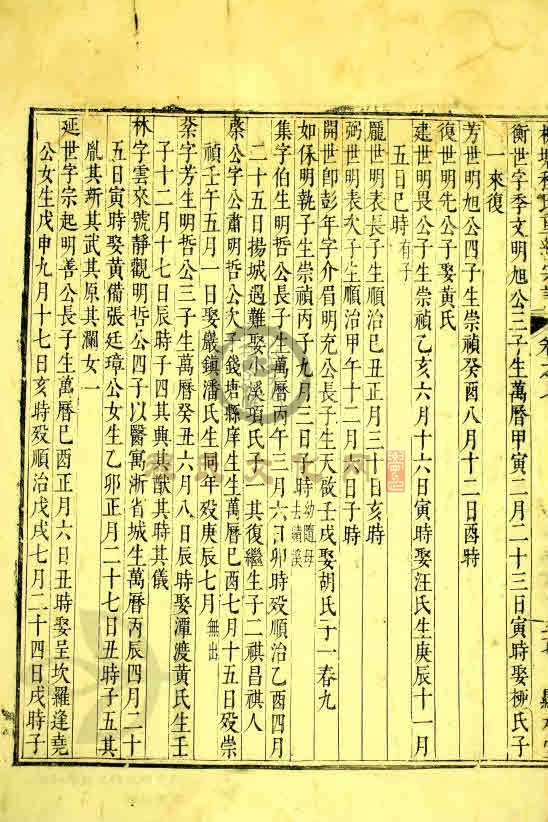 衡世字季文明旭公三子生萬曆甲寅二月二十三日寅時娶栁氏子
一來復
芳世明旭公四子生崇禎癸酉八月十二日酉時
復世明先公子娶黃氏
建世明畏公子生崇禎乙亥六月十六日寅時娶汪氏生庚辰十一月
五日巳時有子
龎世明表長子生順治己丑正月三十日亥時
弼世明表次子生順治甲午十二月六日子時
開世卽彭年字介眉明充公長子生天啟壬戌娶胡氏子一春九
如保明執子生崇禎丙子九月三日子時幼隨母去績溪
集字伯生明哲公長子生萬曆丙午三月六日卯時歿順治乙酉四月
二十五日揚城遇難娶 溪項氏子一其復繼生子二祺昌祺人
榮公字公肅明哲公次 錢塘縣庠生生萬曆己酉七月十五日歿崇
禎壬午五月一日娶嚴鎮潘氏生同年歿庚辰七月無出
棻字芳生明哲公三子生萬曆癸丑六月八日辰時娶潭渡黃氏生壬
子十二月十七日辰時子四其典其猷其時其儀
林字雲來號靜觀明哲公四子以醫寓浙省城生萬曆丙辰四月二十
五日寅時娶黃備張廷璋公女生乙卯正月二十七日丑時子五其
胤其新其武其原其瀾女一
延世字宗起明善公長子生萬曆己酉正月六日丑時娶呈坎羅逢堯
公女生戊申九月十七日亥時歿順治戊戌七月二十四日戌時子